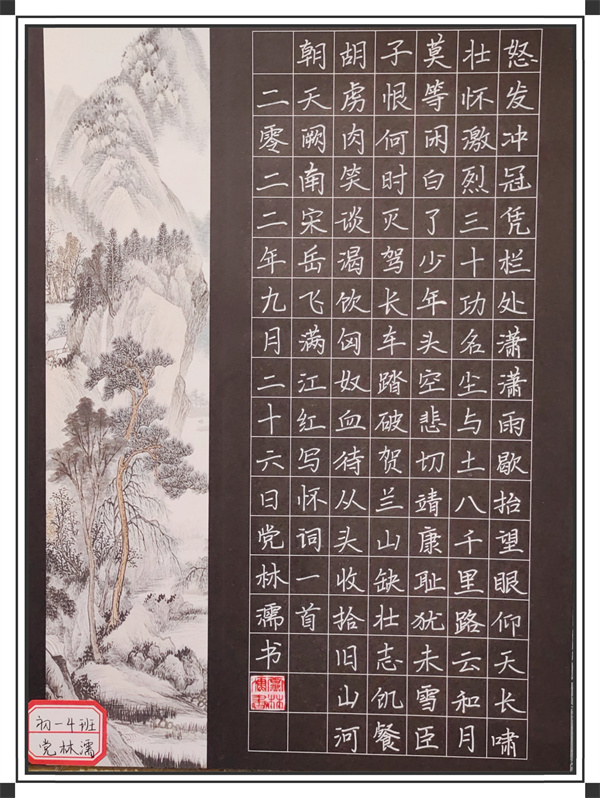 怒发冲冠凭栏处潇潇雨歇抬望眼仰天长啸
壮怀激烈三十功名尘与土八千里路云和月
莫等闲白了少年头空悲切靖康耻犹未雪臣
子恨何时灭驾长车踏破贺兰山缺壮志饥餐
胡虏肉笑谈渴饮匈奴血待从头收拾旧山河
朝天阙南宋岳飞满江红写怀词一首
二零二二年九月二十六日党林濡书
初一4班
党林濡